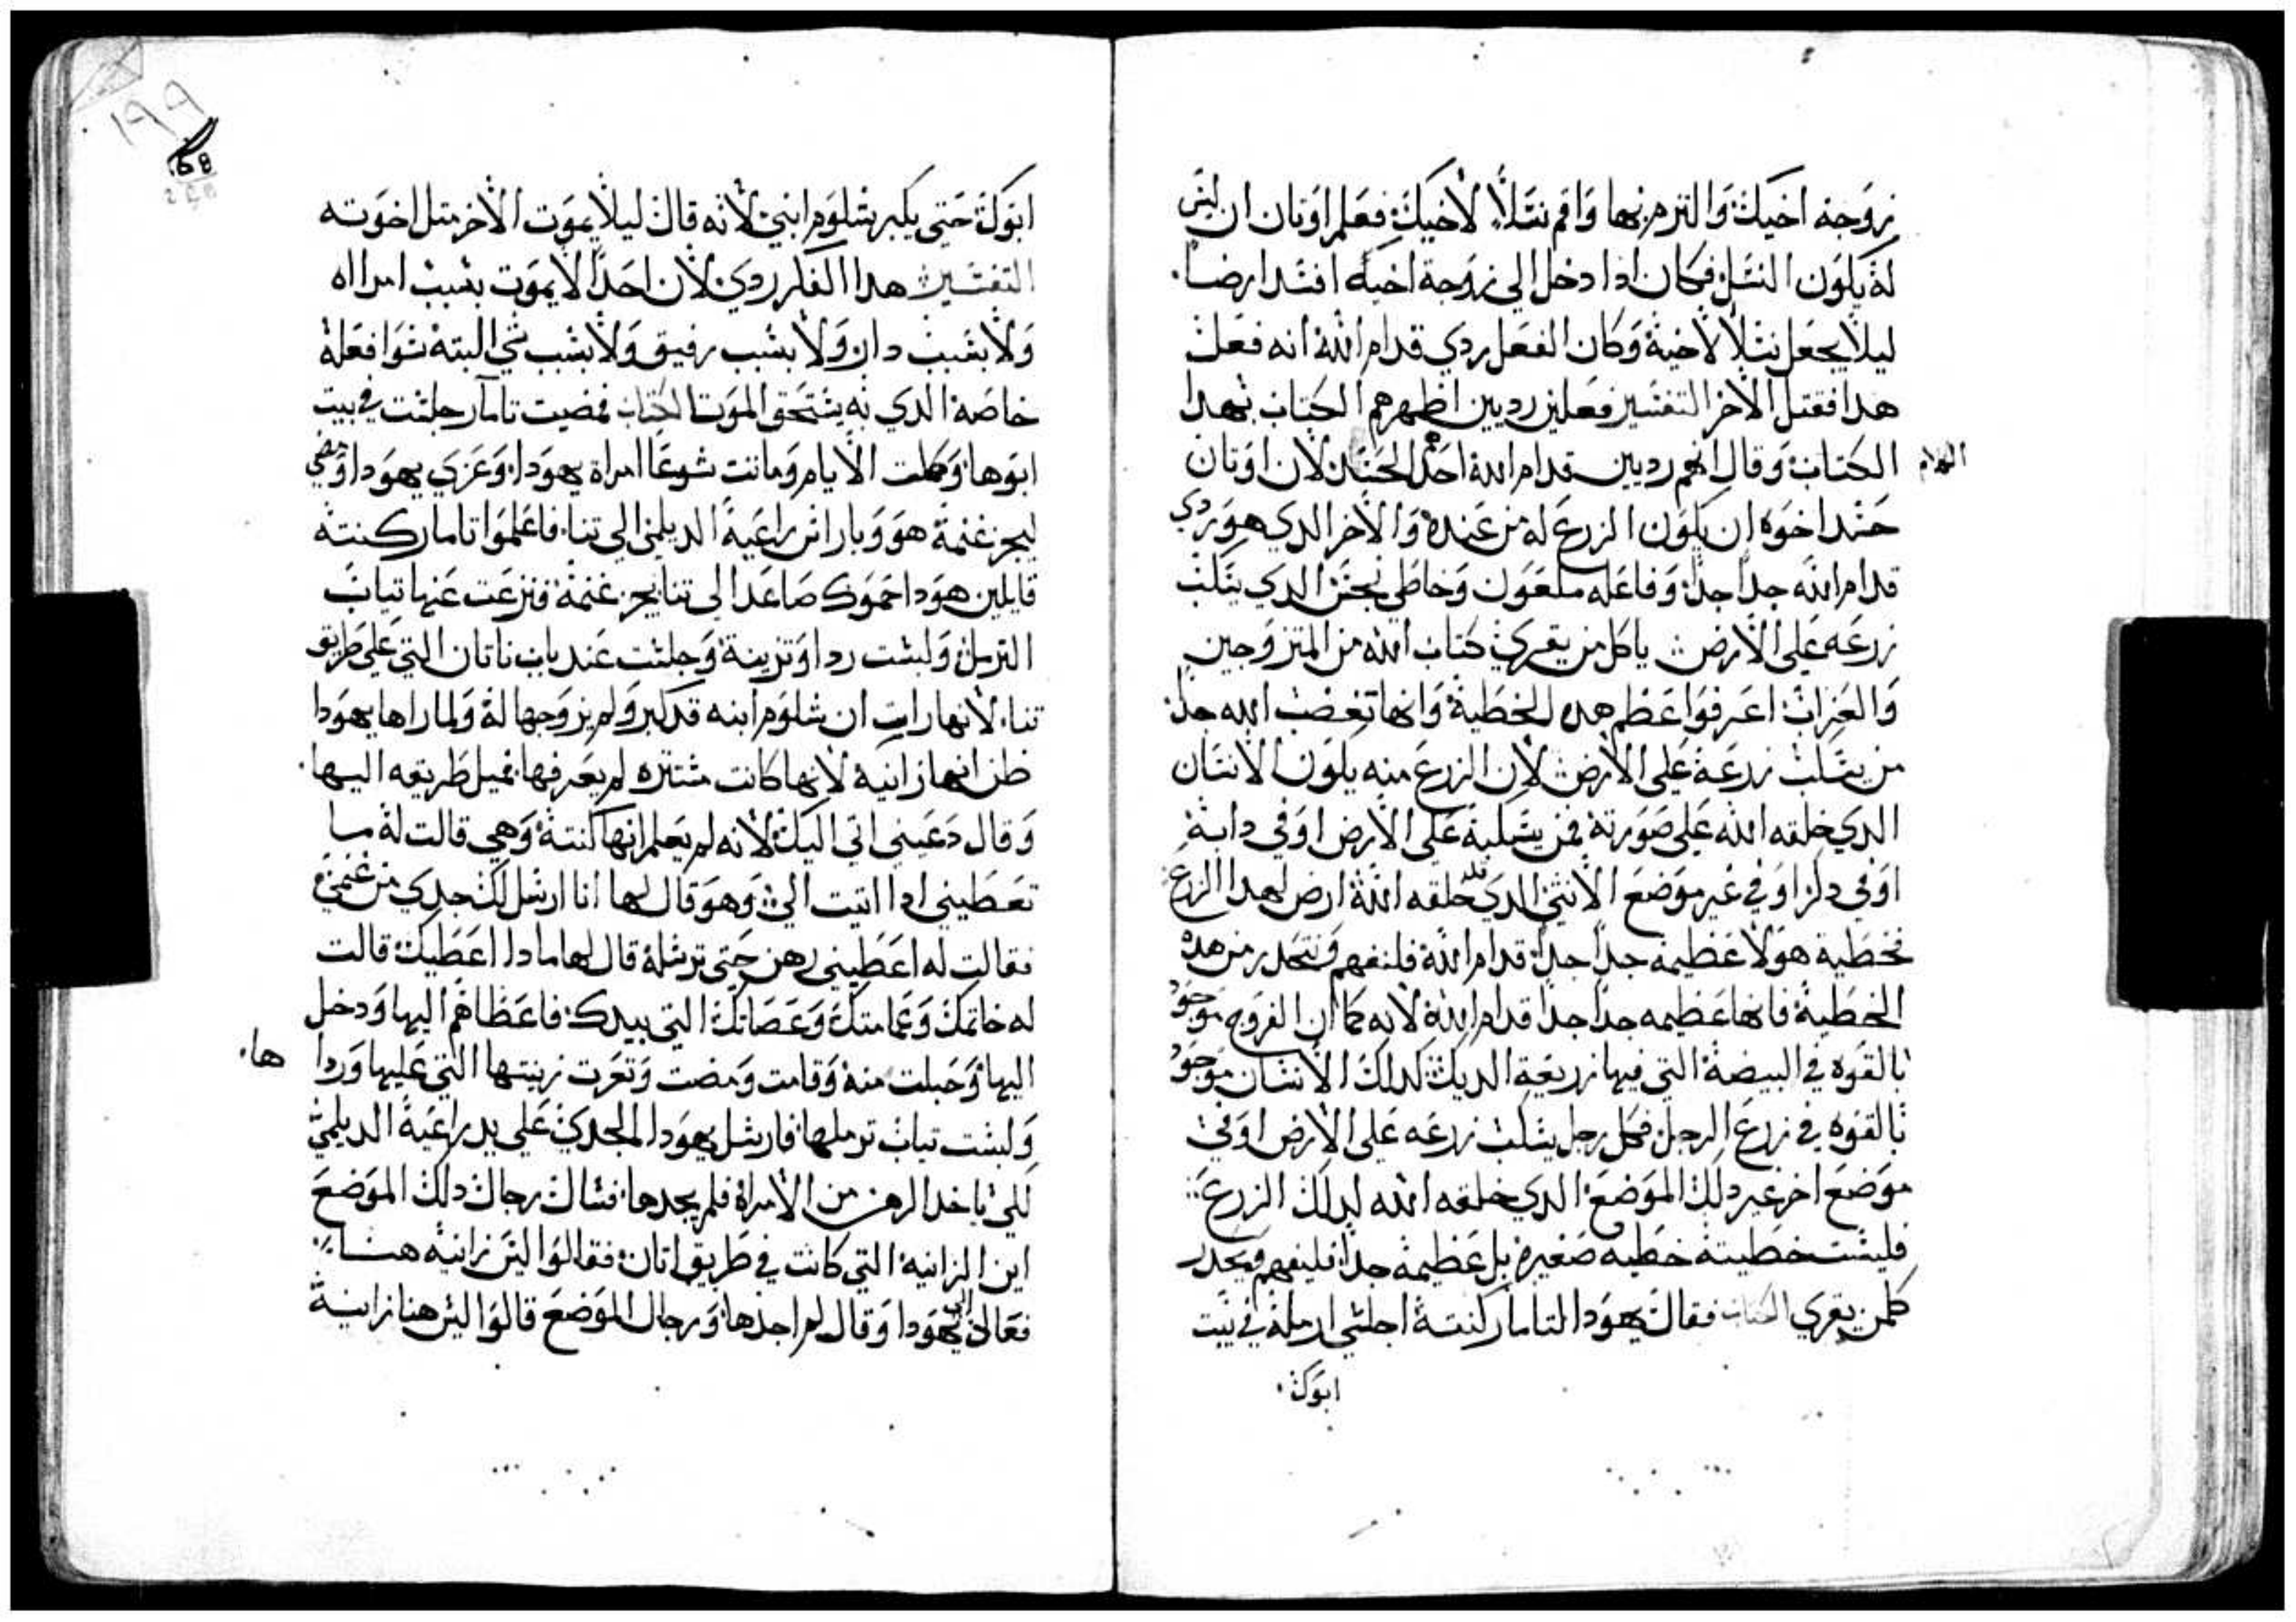 زوجة اخيك والتزم بها واقم نسلاً لاخيك فعلم اونان ان ليس
له يكون النسل فكان اذا دخل الي زوجة اخيه افسد ارضا
ليلا يجعل نسلاً لاخيه وكان الفعل ردي قدام الله انه فعل
هدا فقتل الاخر التفسير فعلين رديين اظهرهم الكتاب بهدا
الكتاب وقال انهم رديين قدام الله احد الحسد لان اونان
حسد اخوه ان يكون الزرع له من عنده والاخر الدي هو ردي
قدام الله جداً جداً وفاعله ملعون وخاطي نجس الدي يسكب
زرعه على الارض ياكل من يقري كتاب الله من المتزوجين
والعزاب اعرفوا عظم هده الخطية وانها تغضب الله جداً
من يسكب زرعه على الارض لان الزرع منه يكون الانسان
الدي خلقه الله على صورته فمن يسكبه على الارض او في دابة
او في دكر او في غير موضع الانثي الدي قد خلقه الله ارض لهدا الزرع
فخطية هولا عظيمة جداً جداً قدام الله فلنفهم ونتحدر من هده
الخطية فانها عظيمه جداً جداً قدام الله لانه كما ان الفروج موجود
بالقوه في البيضة التي فيها زريعة الديك كدلك الانسان موجود
بالقوه في زرع الرجل فكل رجل يسكب زرعه على الارض او في
موضع اخر غير دلك الموضع الدي خلقه الله لدلك الزرع
فليست خطيته خطيه صغيرة بل عظيمة جداً فليفهم ويحدر
كلمن يقري الكتاب فقال يهودا لتامار كنته اجلسي ارملة في بيت
ابوك
١٩٩
168
ابوك حتى يكبر شلوم ابني لانه قال ليلا يموت الاخر متل اخوته
التفسير هدا الفكر ردي لان احداً لا يموت بسبب امراه
ولا بسبب دار ولا بسبب رفيق ولا بسبب شي البته سوا فعله
خاصة الدي به يستحق الموت الكتاب فمضيت تامار جلست في بيت
ابوها وكملت الايام وماتت شوعا امراة يهودا وعزي يهودا ومضي
ليجز غنمة هو وباراس راعية الديلمي الي تنا فاعلموا تامار كنته
قايلين هودا حموك صاعد الي تنا يجز غنمة فنزعت عنها تياب
الترمل ولبست ردا وتزينة وجلست عند باب ناتان التي على طريق
تنا لانها رات ان شلوم ابنه قد كبر ولم يزوجها له ولما راها يهودا
ظن انها زانية لانها كانت مستتره لم يعرفها فميل طريقه اليها
وقال دعيني اتي اليك لانه لم يعلم انها كنته وهي قالت له ما
تعطيني ادا اتيت الي وهو قال لها انا ارسل لك جدي من غنمي
فقالت له اعطيني رهن حتى ترسله قال لها مادا اعطيك قالت
له خاتمك وعمامتك وعصاتك التي بيدك فاعطاهم اليها ودخل
اليها وحبلت منه وقامت ومضت وتعرت زينتها التي عليها وردا ها
ولبست تياب ترملها فارسل يهودا الجدي على يد راعية الديلمي
للي ياخد الرهن من الامراة فلم يجدها فسال رجال دلك الموضع
اين الزانيه التي كانت في طريق اتان فقالوا ليس زانيه هنا
فعاد الي يهودا وقال لم اجدها ورجال الموضع قالوا ليس هنا زانية